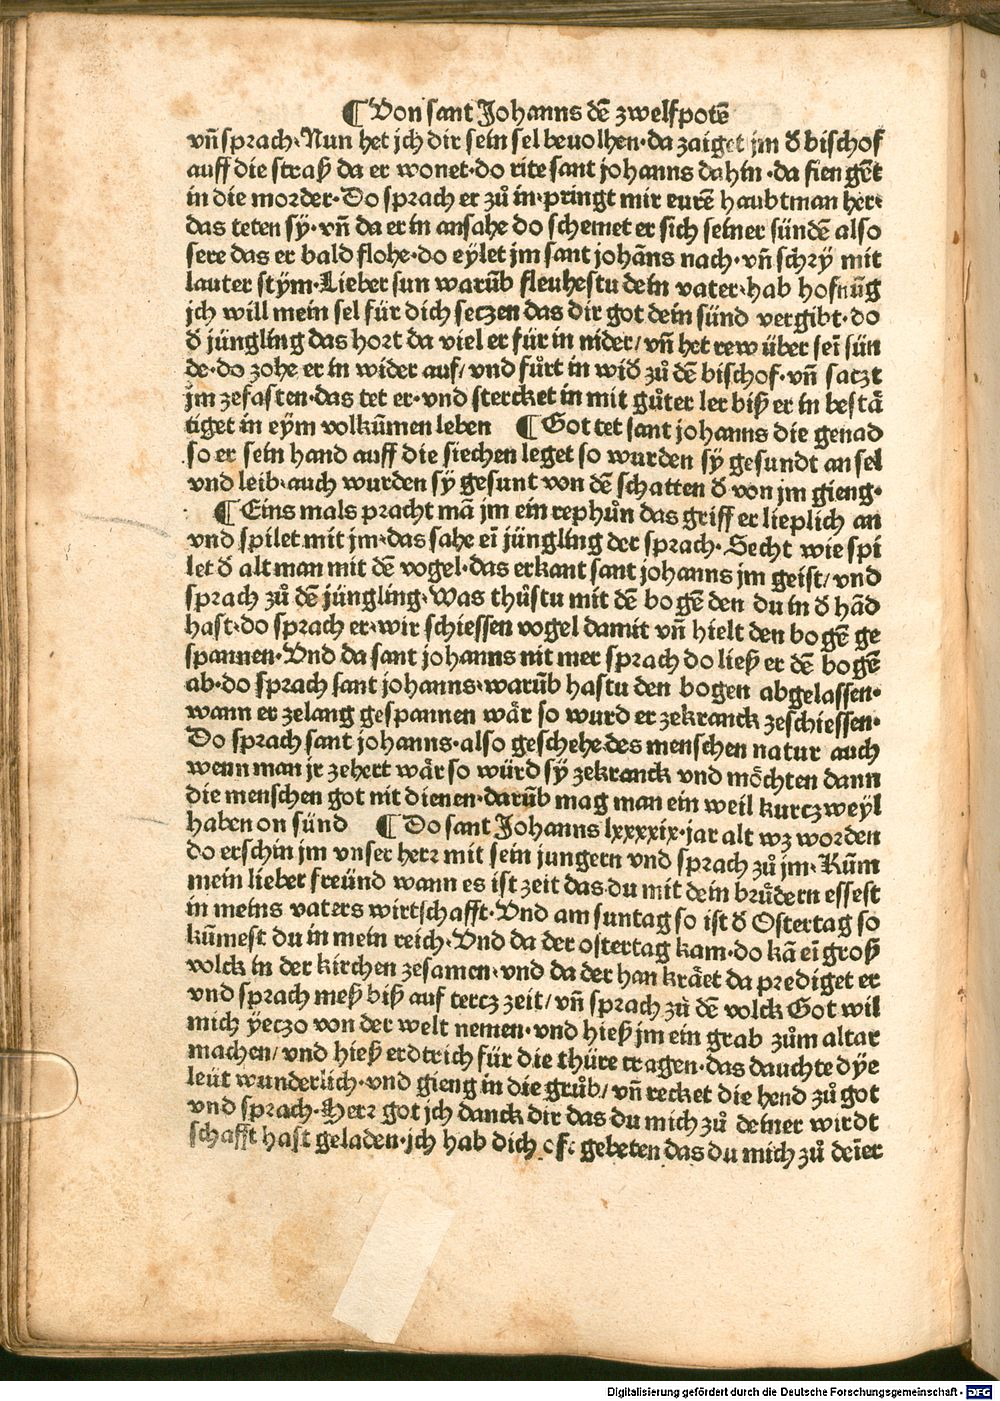 ¶ Von sant Johanns dē zwelfpotē
vn̄ sprach·Nun het jch dir sein sel beuolhen·da zaiget jm đ bischof
auff die straß da er wonet·do rite sant johanns dahin·da fiengēt
in die morder·Do sprach er zů in·pringt mir eurē haubtman her·
das teten sy·vn̄ da er in ansahe do schemet er sich seiner sündē also
sere das er bald flohe·do eylet jm sant johāns nach·vn̄ schrÿ mit
lauter stÿm·Lieber sun warūb fleuhestu dein vater·hab hofnūg
jch will mein sel für dich seczen das dir got dein sünd vergibt·do
đ jüngling das hort da viel er für in nider/vn̄ het rew über sei̅ sün
de·do zohe er in wider auf/vnd fůrt in wiđ zů dē bischof·vn̄ saczt
jm zefasten·das tet er·vnd stercket in mit gůter ler biß er in bestä
tiget in eym volkūmen leben ¶ Got tet sant johanns die genad
so er sein hand auff die siechen leget so wurden sÿ gesundt an sel
vnd leib·auch wurden sÿ gesunt von dē schatten đ von jm gieng·
¶ Eins mals pracht mā jm ein rephůn das griff er lieplich an
vnd spilet mit jm·das sahe ei̅ jüngling der sprach·Secht wie spi
let đ alt man mit dē vogel·das erkant sant johanns jm geist/vnd
sprach zů dē jüngling·Was thůstu mit dē bogē den du in đ hād
hast·do sprach er·wir schiessen vogel damit vn̄ hielt den bogē ge
spannen·Vnd da sant johanns nit mer sprach do ließ er dē bogē
ab·do sprach sant johanns·warūb hastu den bogen abgelassen·
wann er zelang gespannen wär so wurd er zekranck zeschiessen·
Do sprach sant johanns·also geschehe des menschen natur auch
wenn man jr zehert wär so würd sÿ zekranck vnd möchten dann
die menschen got nit dienen·darūb mag man ein weil kurczweÿl
haben on sünd ¶ Do sant Johanns lxxxxix·jar alt wz worden
do erschin jm vnser herr mit sein jungern vnd sprach zů jm·Kūm
mein lieber freünd wann es ist zeit das du mit dein brůdern essest
in meins vaters wirtschafft·Vnd am suntag so ist đ Ostertag so
kūmest du in mein reich·Vnd da der ostertag kam·do kā ei̅ groß
volck in der kirchen zesamen·vnd da der han kräet da prediget er
vnd sprach meß biß auf tercz zeit/vn̄ sprach zů dē volck Got wil
mich ÿeczo von der welt nemen·vnd hieß jm ein grab zům altar
machen/vnd hieß erdtrich für die thüre tragen·das dauchte dÿe
leüt wunderlich·vnd gieng in die grůb/vn̄ recket die hend zů got
vnd sprach·Herr got jch danck dir das du mich zů deiner wirdt
schafft hast geladen·jch hab dich oft gebeten das du mich zů dei̅er
Digitalisierung gefördert durch die Deutsche Forschungsgemeinschaft - DFG